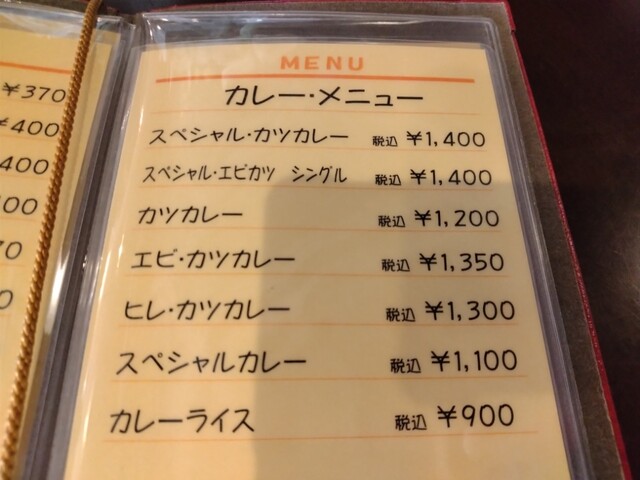 ¥370
¥400
400
00
70
0
MENU
カレー・メニュー
スペシャル・カツカレー 税込 ¥1,400
スペシャル・エビカツ シングル 税込 ¥1,400
カツカレー 税込 ¥1,200
エビ・カツカレー 税込 ¥1,350
ヒレ・カツカレー 税込 ¥1,300
スペシャルカレー 税込 ¥1,100
カレーライス 税込 ¥900